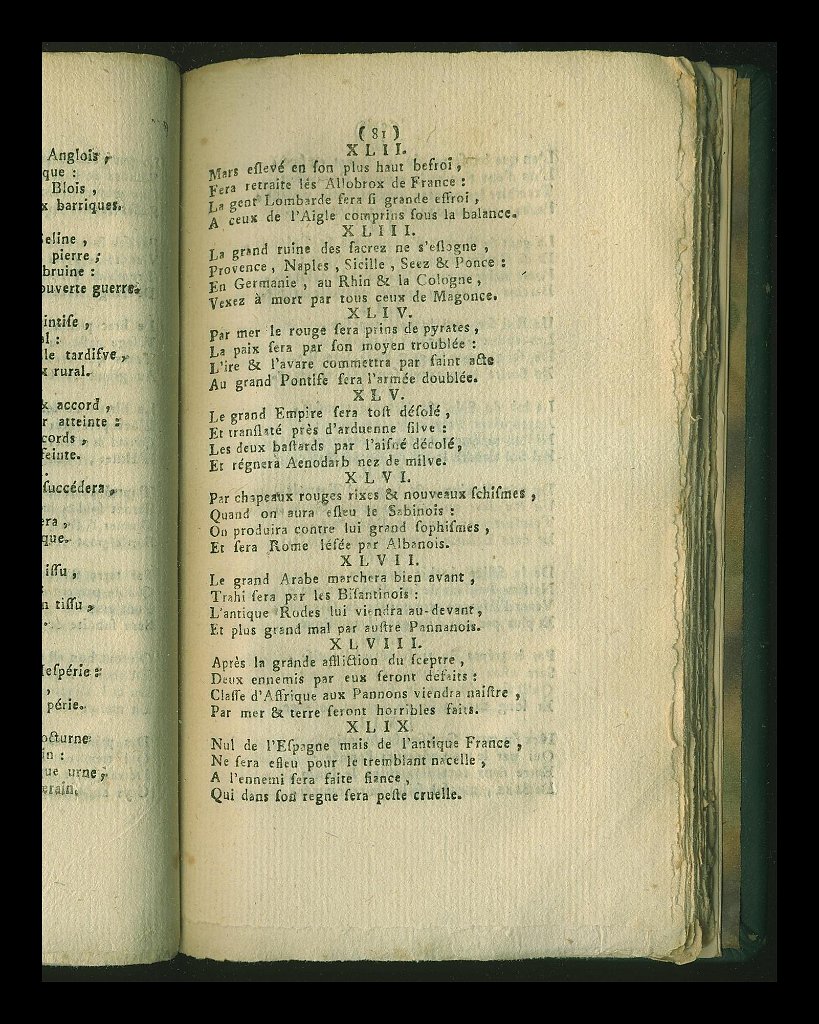 Anglois,
que :
Blois ,
x barriques.
eline ,
pierre ;
bruine :
ouverte guerre.
intiſe ,
ol :
le tardifve,
x rural.
& accord ,
r atteinte :
cords ,
feinte.
ſuccédera ,
era ,
que.
iſſu ,
n tiſſu ,
eſpérie :
,
périe.
octurne
in :
ue urne ,
erain,
( 81 )
X L I I.
Mars eſlevé en ſon plus haut befroi ,
Fera retraite lés Allobrox de France :
La gent Lombarde ſera ſi grande effroi ,
A ceux de l'Aigle comprins ſous la balance.
X L I I I.
La grand ruine des ſacrez ne s'eſlogne ,
Provence , Naples , Sicille , Seez & Ponce :
En Germanie , au Rhin & la Cologne ,
Vexez à mort par tous ceux de Magonce.
X L I V.
Par mer le rouge ſera prins de pyrates ,
La paix ſera par ſon moyen troublée :
L'ire & l'avare commettra par ſaint acte
Au grand Pontife ſera l'armée doublée.
X L V.
Le grand Empire ſera toſt déſolé ,
Et tranſlaté près d'arduenne ſilve :
Les deux baſtards par l'aiſné décolé,
Et régnera Aenodarb nez de milve.
X L V I.
Par chapeaux rouges rixes & nouveaux ſchiſmes ,
Quand on aura eſleu le Sabinois :
On produira contre lui grand ſophiſmes ,
Et ſera Rome léſée par Albanois.
X L V I I.
Le grand Arabe marchera bien avant ,
Trahi ſera par les Biſantinois :
L'antique Rodes lui viendra au-devant,
Et plus grand mal par auſtre Pannanois.
X L V I I I.
Après la grande affliction du ſceptre ,
Deux ennemis par eux ſeront defaits :
Claſſe d'Affrique aux Pannons viendra naiſtre ,
Par mer & terre ſeront horribles faits.
X L I X
Nul de l'Eſpagne mais de l'antique France ,
Ne ſera eſleu pour le tremblant nacelle ,
A l'ennemi ſera faite fiance ,
Qui dans ſon regne ſera peſte cruelle.